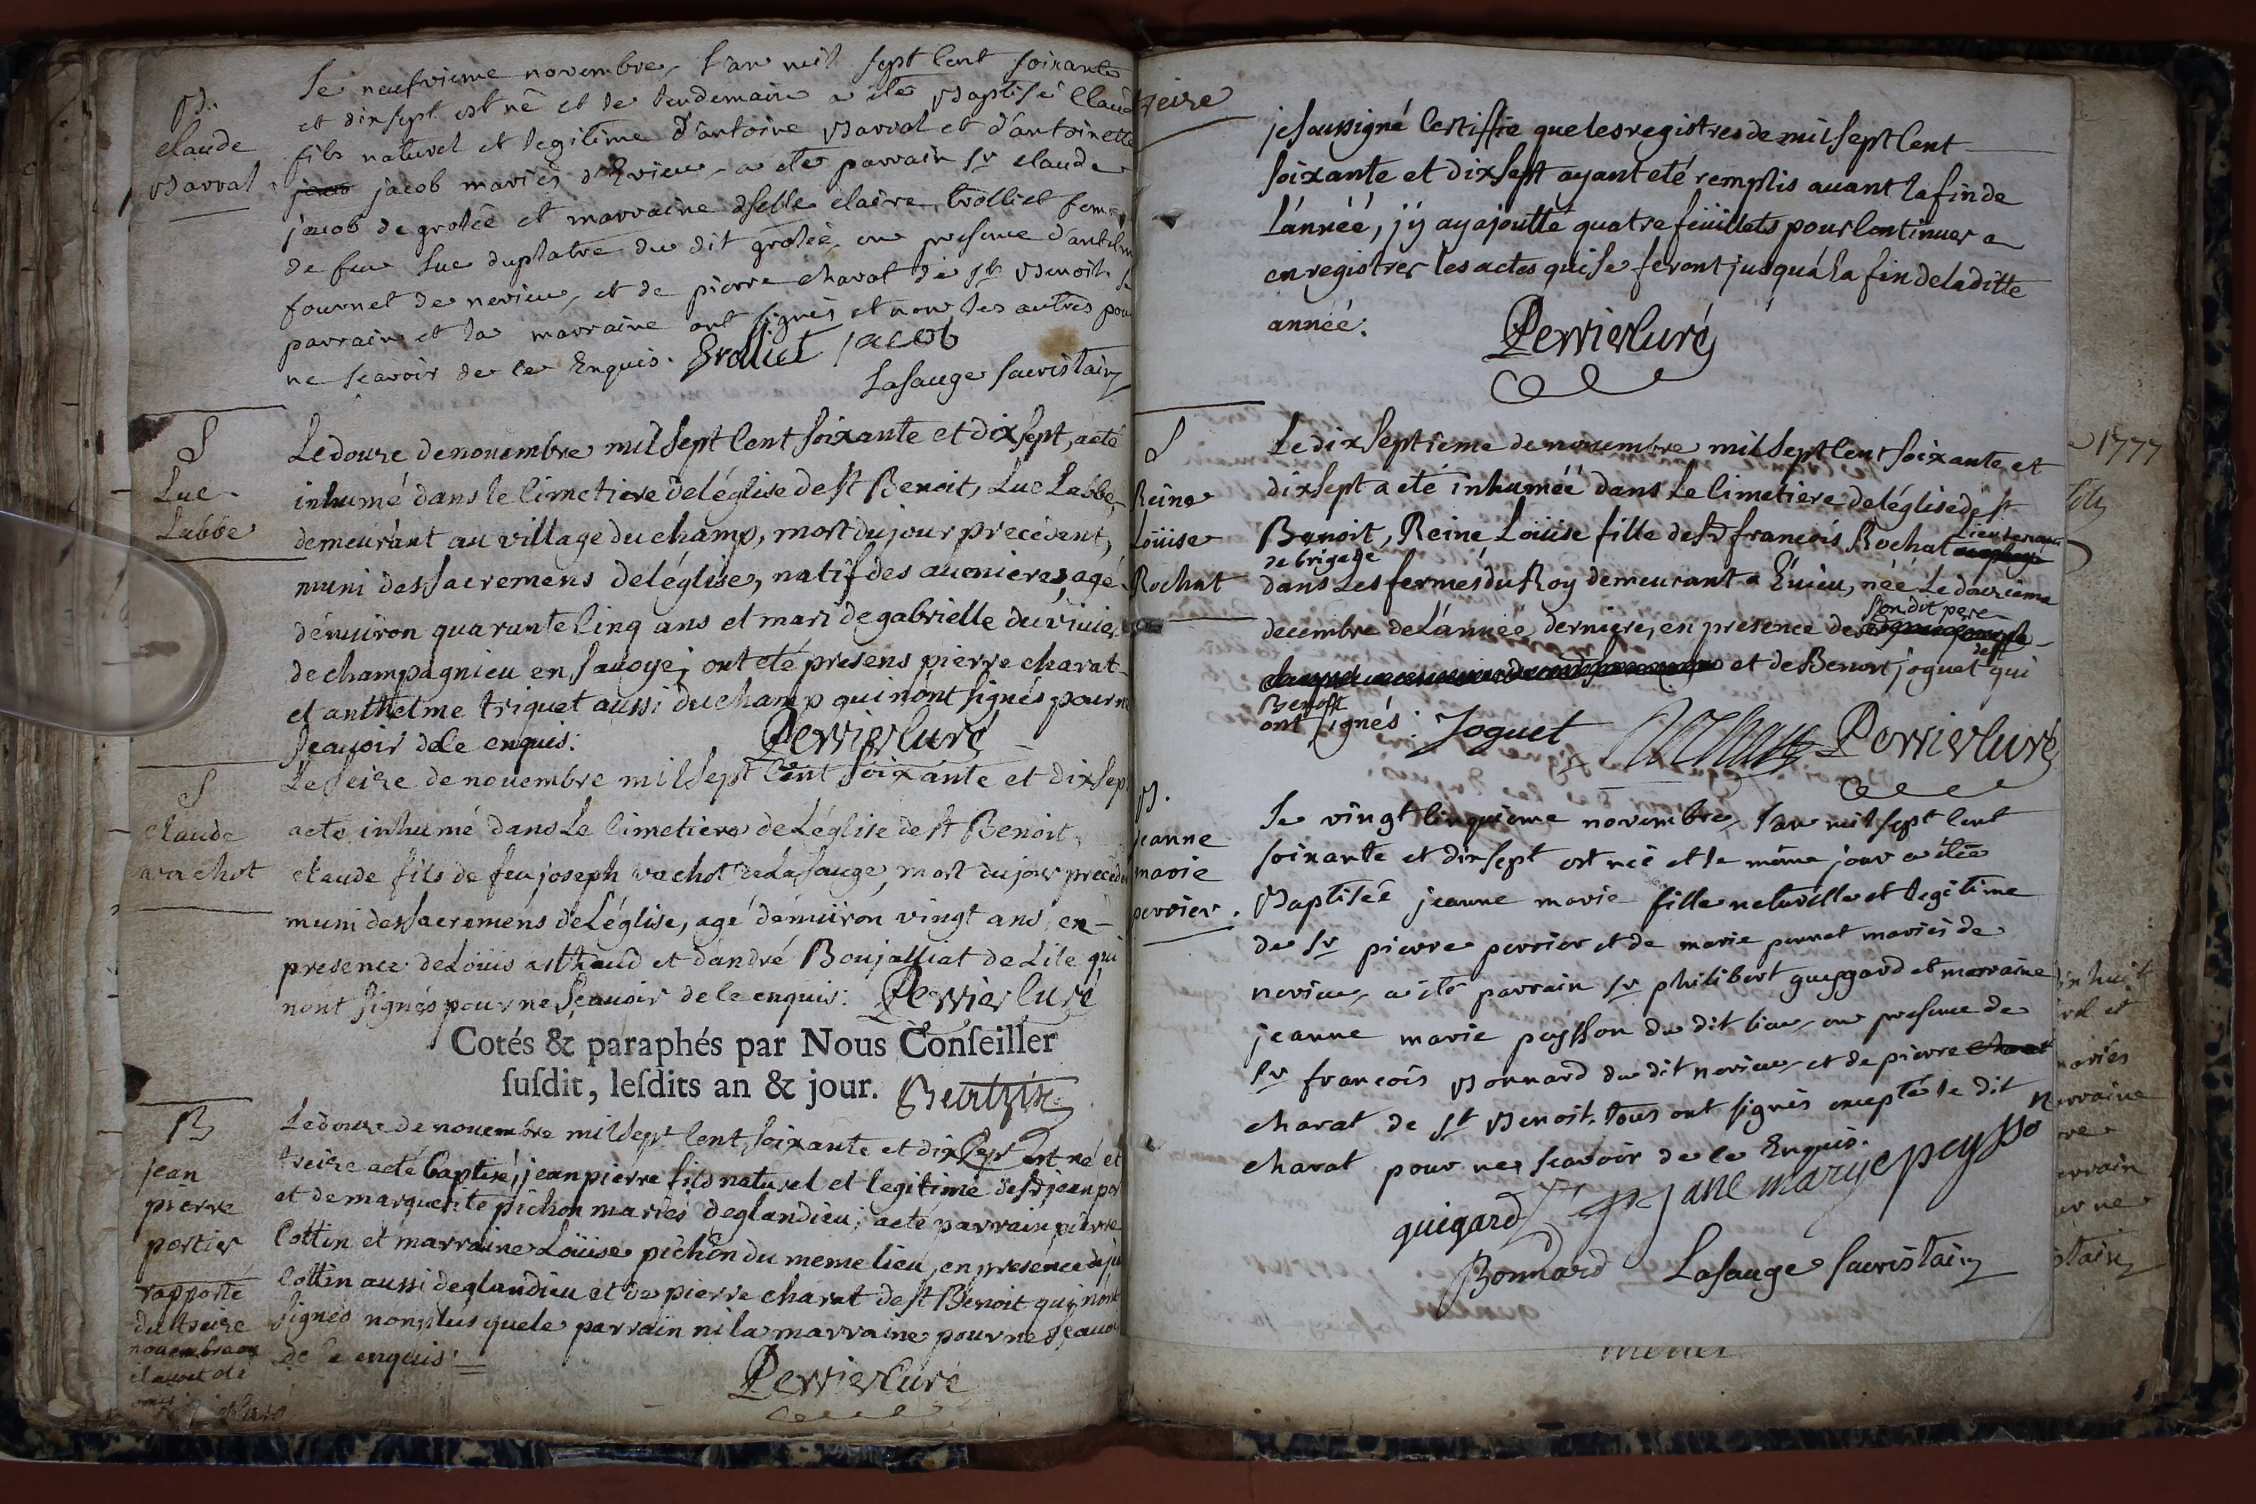 B.
claude
Barral
Le neufvieme novembre, l'an mil sept cent soixante
et dix sept est né et le lendemain a été Baptisé Claude
fils naturel et legitime d'antoine Barral et d'antoinette
jacob mariés d'Evieu, a été parrain Sr claude
jacob de grolée et marraine dselle claire trolliet feme
de feu Luc duplatre du dit grolée en presence d'anthelme
fournet de nerieu, et de pierre charat de St Benoit le
parrain et la marraine ont signés et non les autres pour
ne scavoir de ce Enquis. trolliet jacob
Lasauge sacristain
S
Luc
Labbe
Ledouze denouembre mil sept Cent soixante et dix sept, a eté
inhumé dans le Cimetiere del'église de st Benoit, Luc Labbe,
demeurant au village du champ, mort du jour precedent,
muni des sacremens del'église, natif des auenieres, agé
d'enuiron quarante Cinq ans et mari de gabrielle du viuier
de champagnieu en sauoye; ont eté presens pierre charat
et anthelme triquet aussi du champ qui n'ont signés pour ne
sçauoir dele enquis: Perrier Curé
S
claude
vachot
Le seize de nouembre mil sept Cent soixante et dix sept
a eté inhumé dans Le Cimetiere de L'église de st Benoit,
claude fils de feu joseph vachot de La sauge, mort du jour precedent
muni des sacremens de L'église, agé d'enuiron vingt ans, en
presence de Loüis arthaud et d'andré Boujalliat de Lile qui
nont signés pour ne sçauoir de le enquis: Perrier Curé
Cotés & paraphés par Nous Conseiller
susdit, lesdits an & jour.
B
jean
pierre
portier
rapporté
du treize
nouembre ou
il auoit eté
Ledouze de nouembre mil sept Cent soixante et dix sept est né et
treize a eté baptisé, jean pierre fils naturel et legitime de sr jean por
et de marguerite pichon mariés deglandieu; a eté parrain pierre
Cottin et marraine Loüise pichon du meme lieu, en presence de
Cottin aussi deglandieu et de pierre charat de st Benoit qui n'ont
signés non plus que le parrain ni la marraine pour ne sçauoi
de le enquis:
Perrier Curé
je soussigné Certiffie que les registres de mil sept Cent
soixante et dix sept ayant eté remplis auant la fin de
L'année, j'y ay ajoutté quatre feüillets pour Continuer a
enregistrer les actes qui se feront jusqu'a La fin de la ditte
année:
Perrier Curé
S
Reine
Loüise
Rochat
Le dix septieme de nouembre mil sept Cent soixante et
dix sept a eté inhumée dans Le Cimetiere del'église de st
Benoit, Reine Loüise fille de sr françois Rochat Lieutenant
de brigade
dans Les fermes du Roy demeurant a Euieu, née Le douzieme
decembre de L'année derniere, en presence de son dit pere
et de Benoit joguet de st
Benoit
qui
ont signés: Joguet Rochat Perrier Curé
B.
jeanne
marie
perrier.
Le vingt Cinquieme novembre, l'an mil sept Cent
soixante et dix sept est née et le même jour a été
Baptisée jeanne marie fille naturelle et legitime
de Sr pierre perrier et de marie pernet mariés de
nerieu, a été parrain Sr philibert guiggard et marraine
jeanne marie peysson du dit lieu, en presence de
Sr francois Bonnard du dit nerieu, et de pierre
charat de St Benoit. tous ont signés excepté le dit
charat pour ne scavoir de ce Enquis.
guigard jane marye peysso
Bonnard Lasauge sacristain
1777